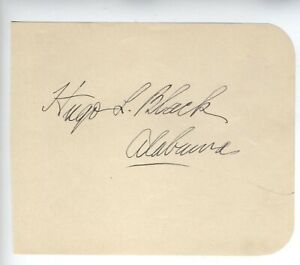 Hugo L. Black
Alabama